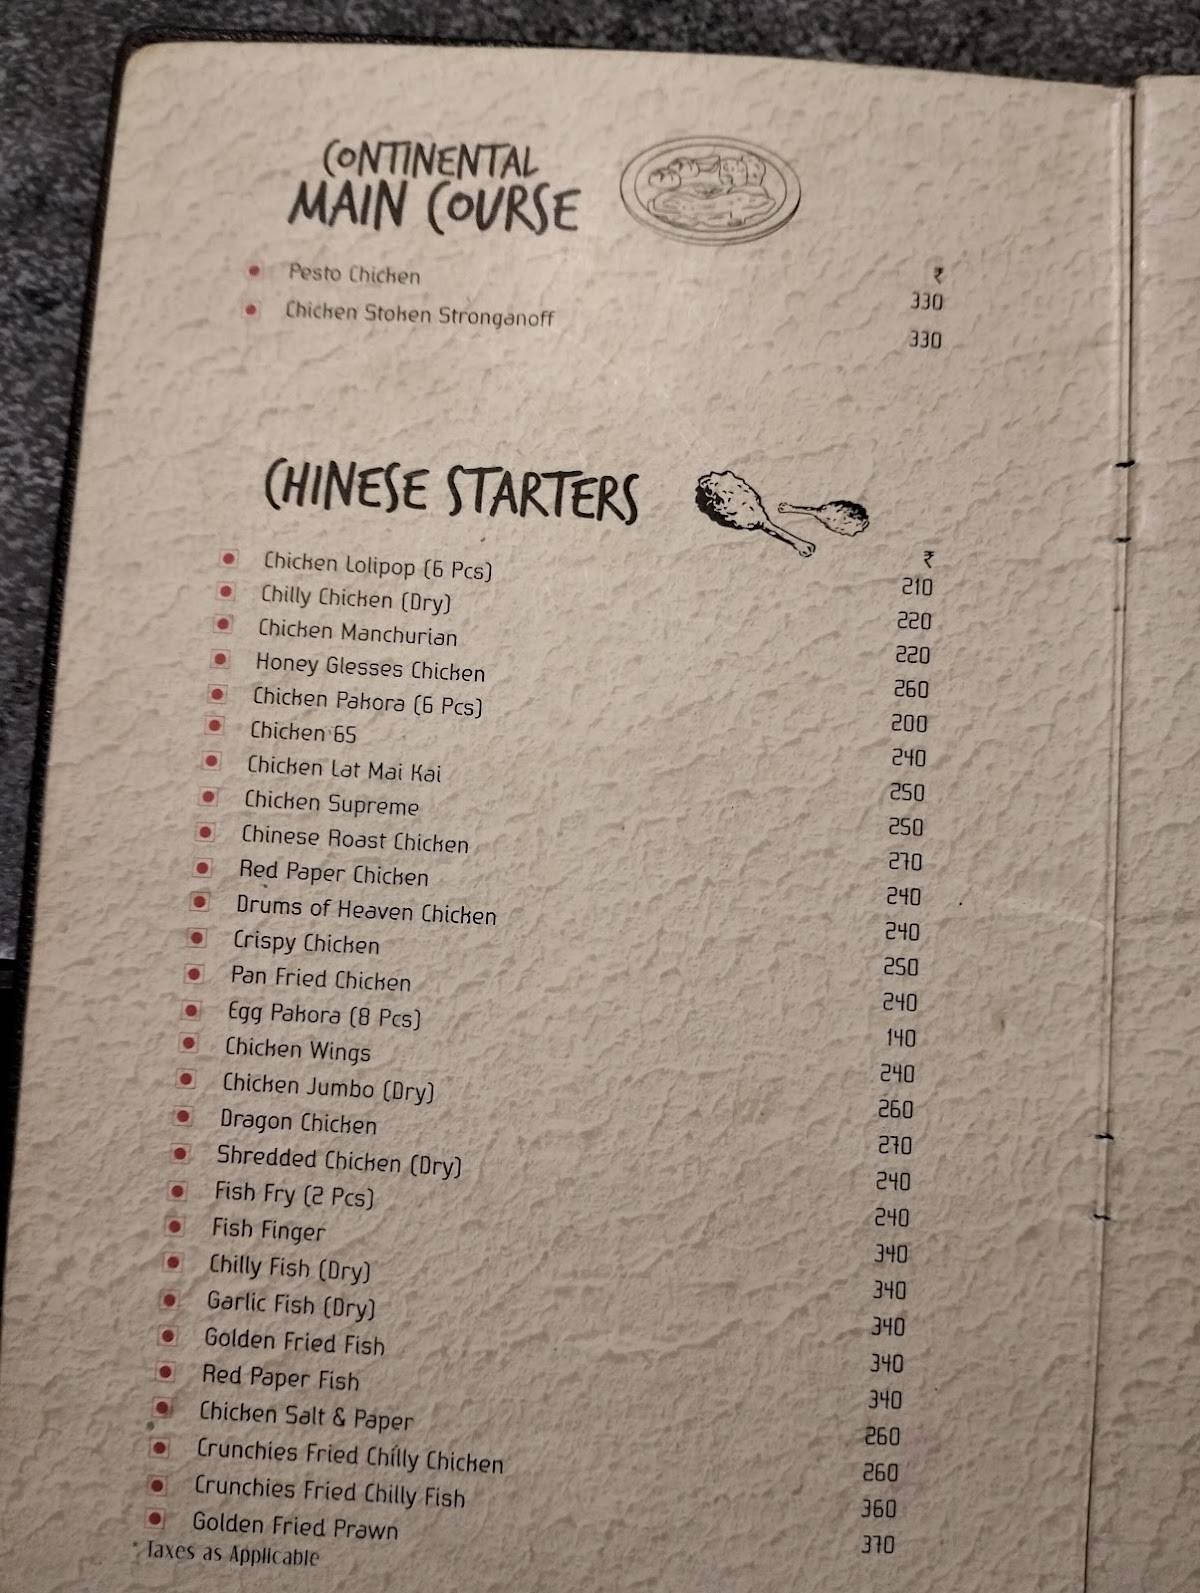 CONTINENTAL
MAIN COURSE
₹
Pesto Chicken 330
Chicken Stoken Stronganoff 330
CHINESE STARTERS
₹
Chicken Lolipop (6 Pcs) 210
Chilly Chicken (Dry) 220
Chicken Manchurian 220
Honey Glesses Chicken 260
Chicken Pakora (6 Pcs) 200
Chicken 65 240
Chicken Lat Mai Kai 250
Chicken Supreme 250
Chinese Roast Chicken 270
Red Paper Chicken 240
Drums of Heaven Chicken 240
Crispy Chicken 250
Pan Fried Chicken 240
Egg Pakora (8 Pcs) 140
Chicken Wings 240
Chicken Jumbo (Dry) 260
Dragon Chicken 270
Shredded Chicken (Dry) 240
Fish Fry (2 Pcs) 240
Fish Finger 340
Chilly Fish (Dry) 340
Garlic Fish (Dry) 340
Golden Fried Fish 340
Red Paper Fish 340
Chicken Salt & Paper 260
Crunchies Fried Chilly Chicken 260
Crunchies Fried Chilly Fish 360
Golden Fried Prawn 370
* Taxes as Applicable